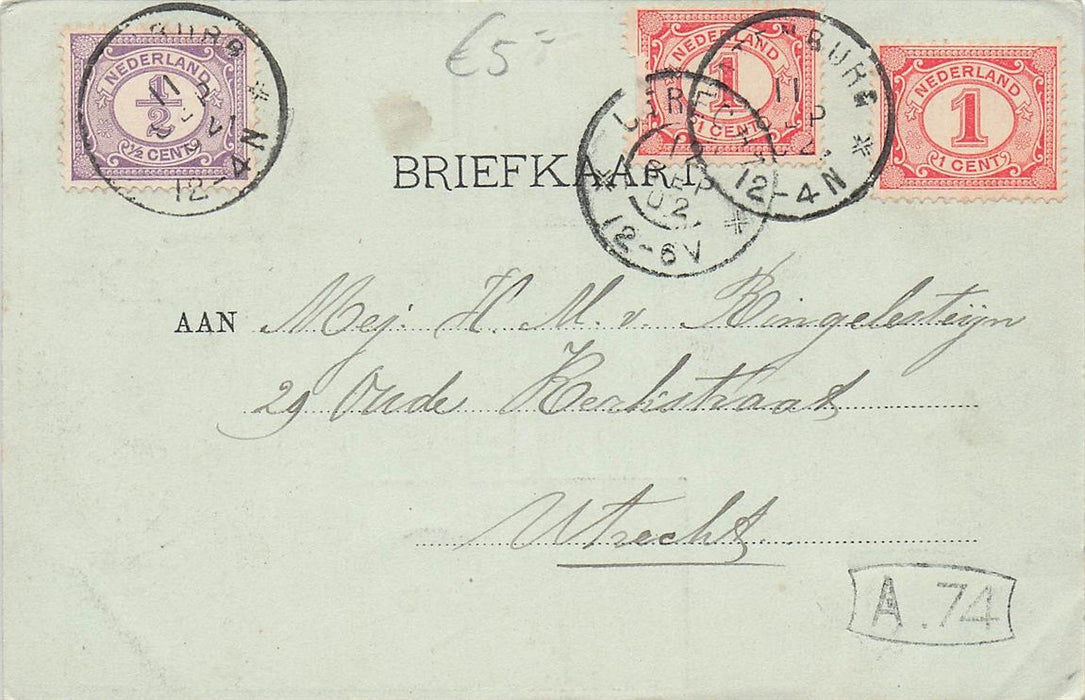 €5-
NEDERLAND
1/2
½ CENT
BURG
11
12-4N
NEDERLAND
1
1 CENT
BURG
11
12-4N
NEDERLAND
1
1 CENT
UTRECHT
SEP
02
12-6V
BRIEFKAART
AAN Mej. H. M. v. Ringelesteijn
29 Oude Kerkstraat
Utrecht
A.74